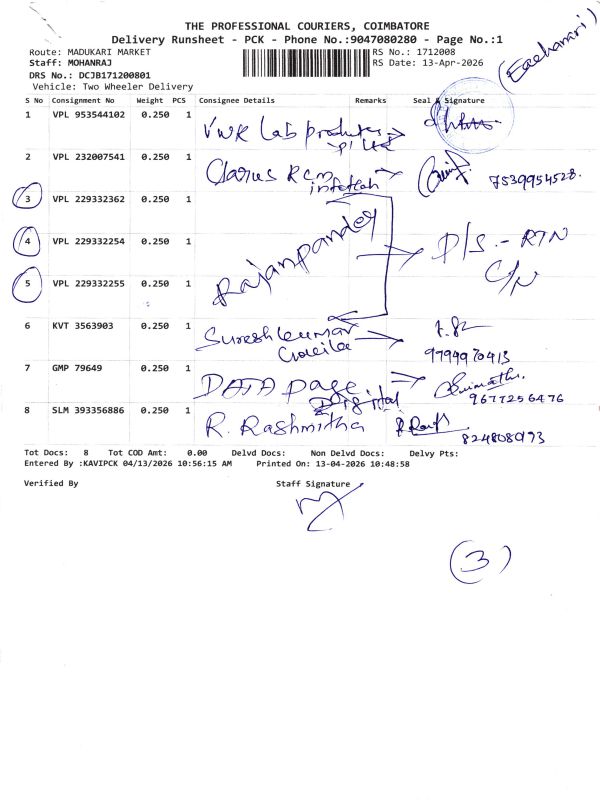 THE PROFESSIONAL COURIERS, COIMBATORE
Delivery Runsheet - PCK - Phone No.:9047080280 - Page No.:1
Route: MADUKARI MARKET
RS No.: 1712008
Staff: MOHANRAJ
RS Date: 13-Apr-2026
DRS No.: DCJB171200801
Vehicle: Two Wheeler Delivery
(Eachanari)
S No Consignment No Weight PCS Consignee Details Remarks Seal & Signature
1 VPL 953544102 0.250 1 VWR Lab Produktes
2 VPL 232007541 0.250 1 Clarus Rcm infotech 7539954528.
3 VPL 229332362 0.250 1
4 VPL 229332254 0.250 1 Rajanpandey D/S. - RTN
C/N
5 VPL 229332255 0.250 1
6 KVT 3563903 0.250 1 Sureshkumar
9794970413
7 GMP 79649 0.250 1 DATA page Digital Sumathi.
9677256476
8 SLM 393356886 0.250 1 R. Rashmitha
824808093
Tot Docs: 8 Tot COD Amt: 0.00 Delvd Docs: Non Delvd Docs: Delvy Pts:
Entered By :KAVIPCK 04/13/2026 10:56:15 AM Printed On: 13-04-2026 10:48:58
Verified By Staff Signature
(3)